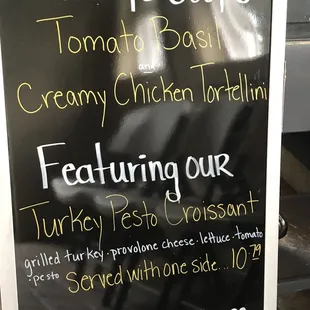 Tomato Basil
and
Creamy Chicken Tortellini
Featuring our
Turkey Pesto Croissant
grilled turkey · provolone cheese · lettuce · tomato
· pesto
Served with one side... 10.79